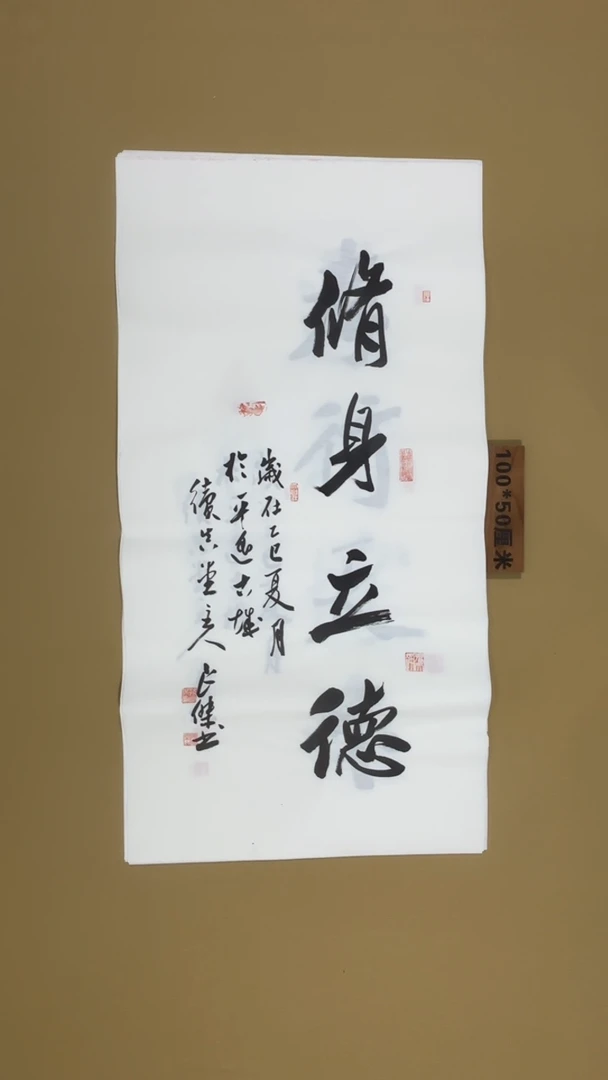 脩身立德
歲在乙巳夏月
於平遙古城
續古堂主人
書
100*50厘米